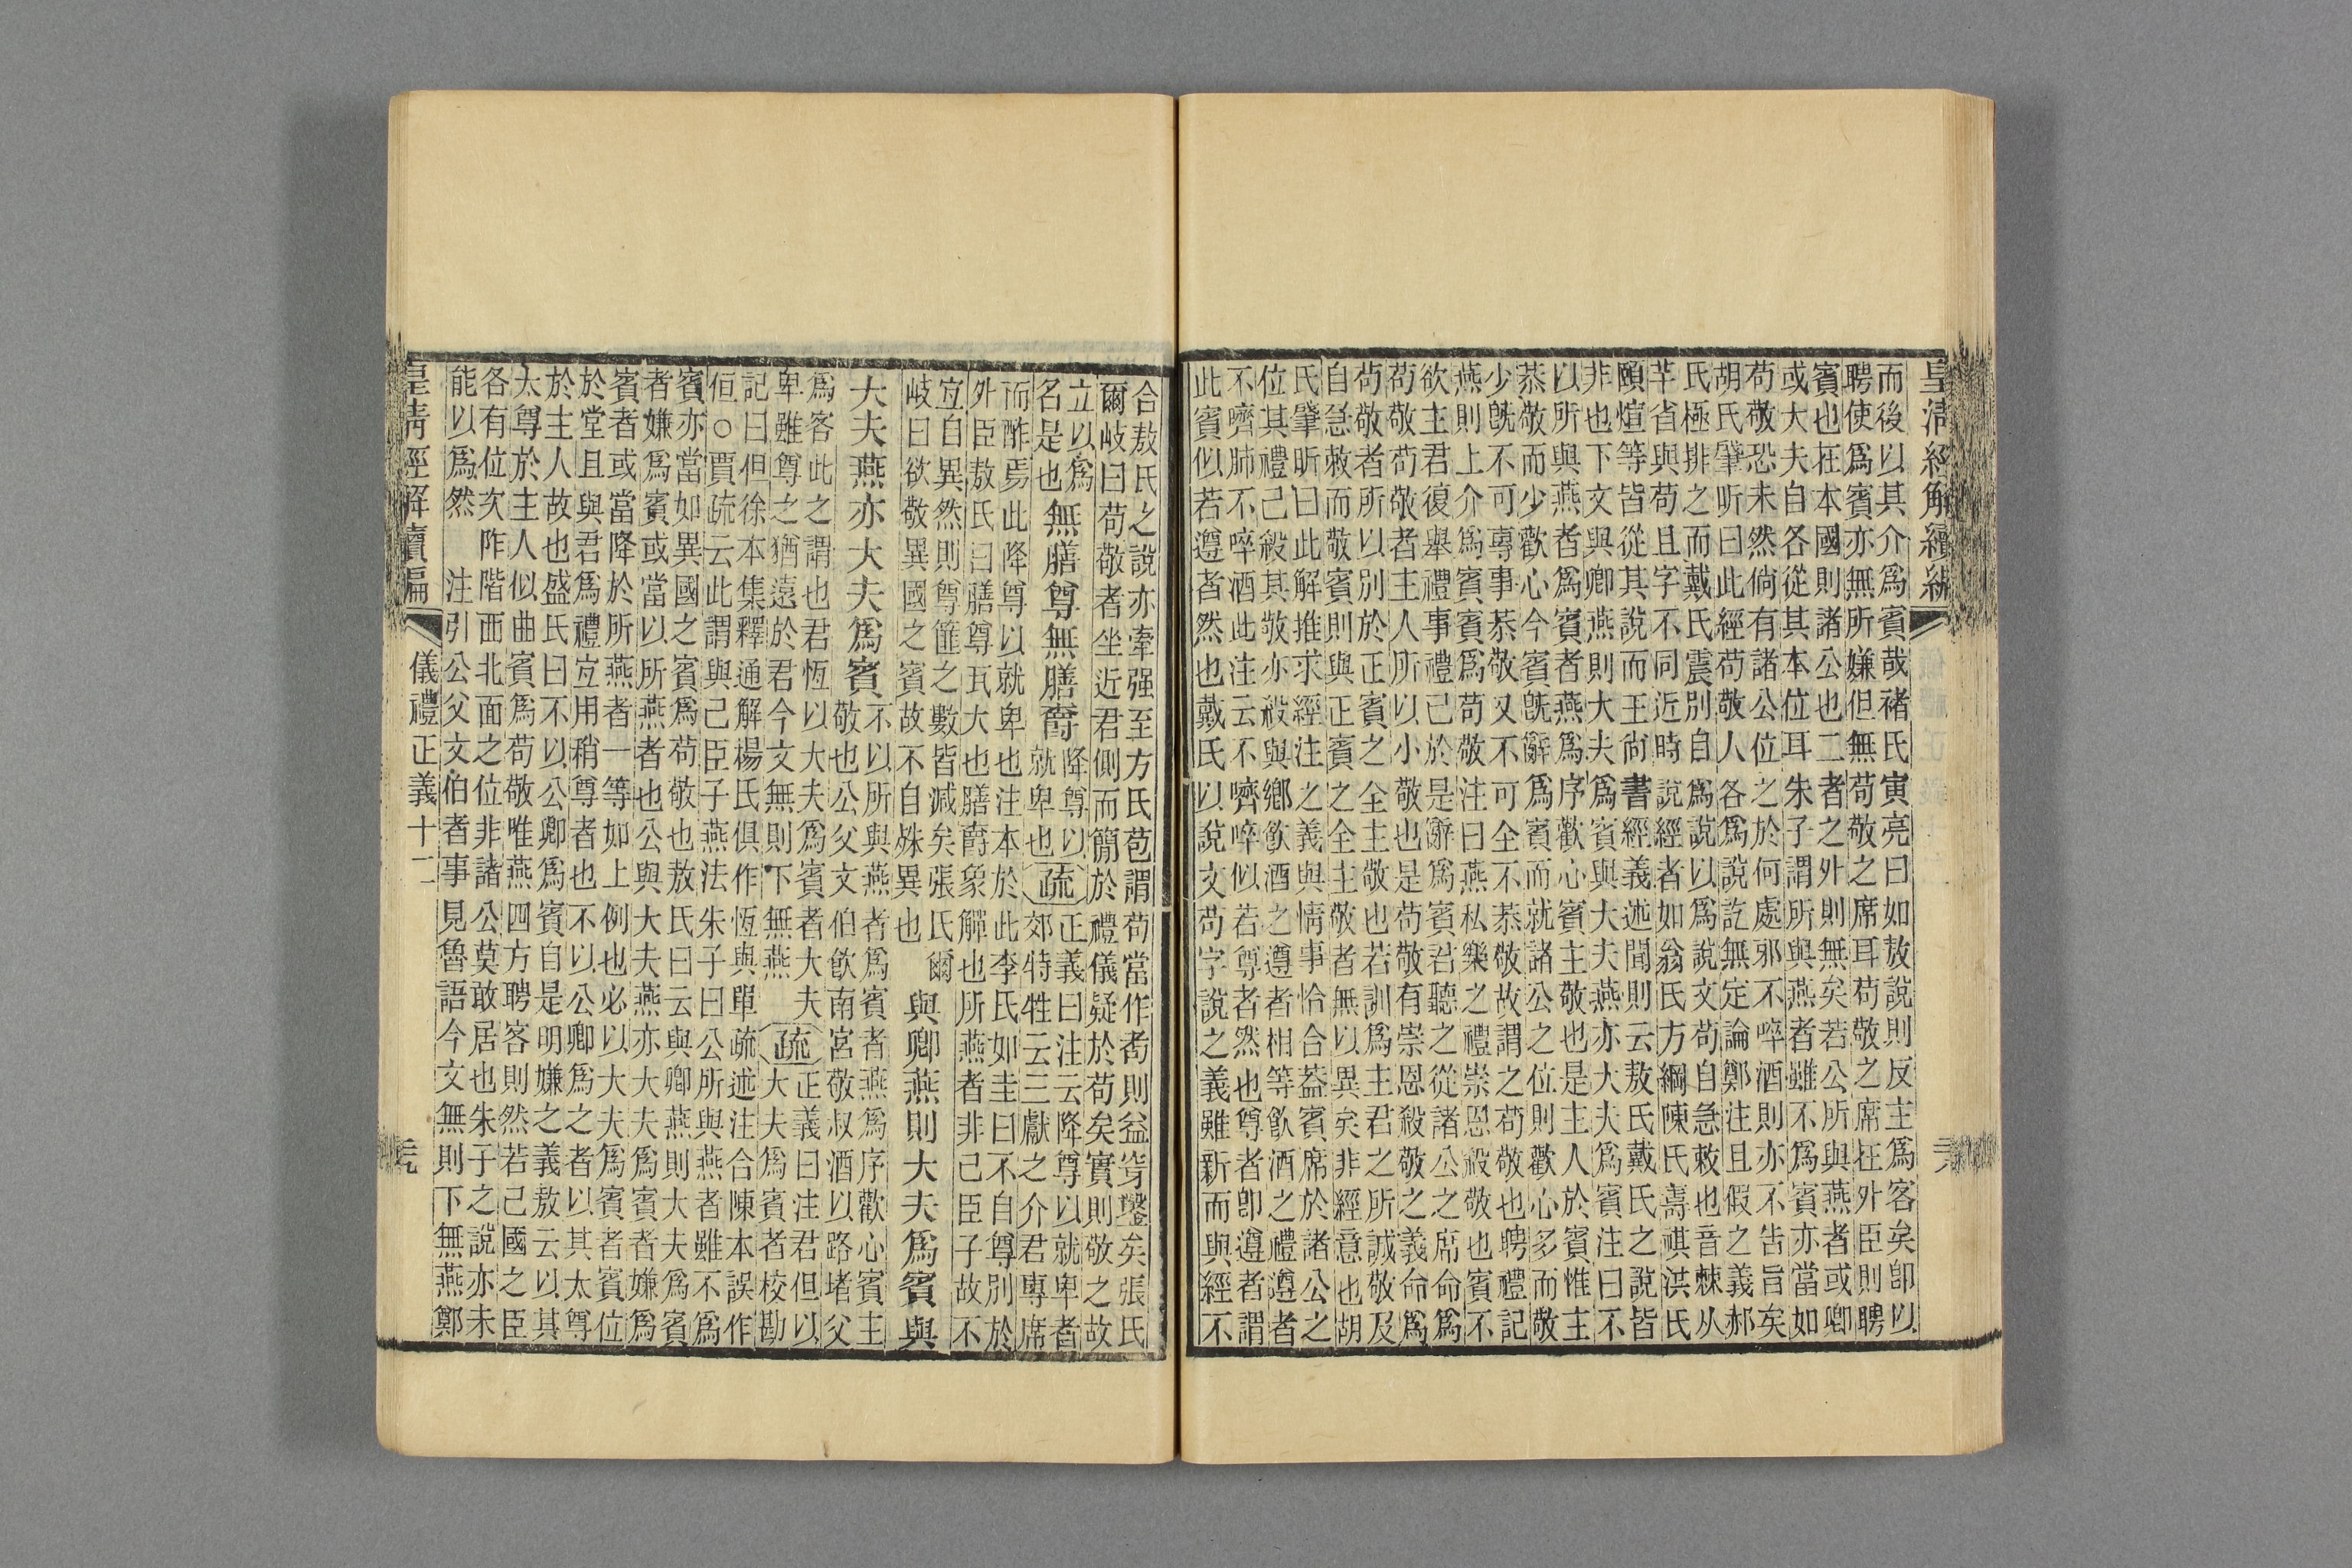 皇清經解續編
而後以其介爲賓哉褚氏寅亮曰如敖說則反主爲客矣卽以
聘使爲賓亦無所嫌但無苟敬之席耳苟敬之席在外臣則聘
賓也在本國則諸公也二者之外則無矣若公所與燕者或卿
或大夫自各從其本位耳朱子謂所與燕者雖不爲賓亦當如
苟敬恐未然倘有諸公位之於何處邪不啐酒則亦不告旨矣
胡氏肇昕曰此經苟敬人各爲說訖無定論鄭注且假之義郝
氏極排之而戴氏震別自爲說以爲說文苟自急敕也音棘从
芊省與苟且字不同近時說經者如翁氏方綱陳氏壽祺洪氏
頤煊等皆從其說而王尙書經義述聞則云敖氏戴氏之說皆
非也下文與卿燕則大夫爲賓與大夫燕亦大夫爲賓注曰不
以所與燕者爲賓者燕爲序歡心賓主敬也是主人於賓惟主
恭敬而少歡心今賓旣辭爲賓而就諸公之位則歡心多而敬
少旣不可專事恭敬又不可全不恭敬故謂之苟敬也聘禮記
燕則上介爲賓賓爲苟敬注曰燕私樂之禮崇恩殺敬也賓不
欲主君復舉禮事禮己於是辭爲賓君聽之從諸公之席命爲
苟敬苟敬者主人所以小敬也是苟敬有崇恩殺敬之義命爲
苟敬者所以別於正賓之全主敬也若訓爲主君之所誠敬及
自急敕而敬賓則與正賓之全主敬者無以異矣非經意也胡
氏肇昕曰此解推求經注之義與情事恰合葢賓席於諸公之
位其禮己殺其敬亦殺與鄉飮酒之遵者相等飮酒之禮遵者
不嚌肺不啐酒此注云不嚌啐似若尊者然也尊者卽遵者謂
此賓似若遵者然也戴氏以說文苟字說之義雖新而與經不
合敖氏之說亦牽强至方氏苞謂苟當作耇則益穿鑿矣張氏
爾岐曰苟敬者坐近君側而簡於禮儀疑於苟矣實則敬之故
立以爲
名是也
無膳尊無膳爵
降尊以
就卑也
疏
正義曰注云降尊以就卑者
郊特牲云三獻之介君專席
而酢焉此降尊以就卑也注本於此李氏如圭曰不自尊別於
外臣敖氏曰膳尊瓦大也膳爵象觶也所燕者非己臣子故不
宜自異然則尊篚之數皆減矣張氏爾
岐曰欲敬異國之賓故不自殊異也
與卿燕則大夫爲賓與
大夫燕亦大夫爲賓
不以所與燕者爲賓者燕爲序歡心賓主
敬也公父文伯飮南宮敬叔酒以路堵父
爲客此之謂也君恆以大夫爲賓者大夫
卑雖尊之猶遠於君今文無則下無燕
疏
正義曰注君但以
大夫爲賓者校勘
記曰但徐本集釋通解楊氏俱作恆與單疏述注合陳本誤作
但○賈疏云此謂與己臣子燕法朱子曰公所與燕者雖不爲
賓亦當如異國之賓爲苟敬也敖氏曰云與卿燕則大夫爲賓
者嫌爲賓或當以所燕者也公與大夫燕亦大夫爲賓者嫌爲
賓者或當降於所燕者一等如上例也必以大夫爲賓者賓位
於堂且與君爲禮宜用稍尊者也不以公卿爲之者以其太尊
於主人故也盛氏曰不以公卿爲賓自是明嫌之義敖云以其
太尊於主人似曲賓爲苟敬唯燕四方聘客則然若己國之臣
各有位次阼階西北面之位非諸公莫敢居也朱子之說亦未
能以爲然 注引公父文伯者事見魯語今文無則下無燕鄭
皇清經解續編 儀禮正義十二